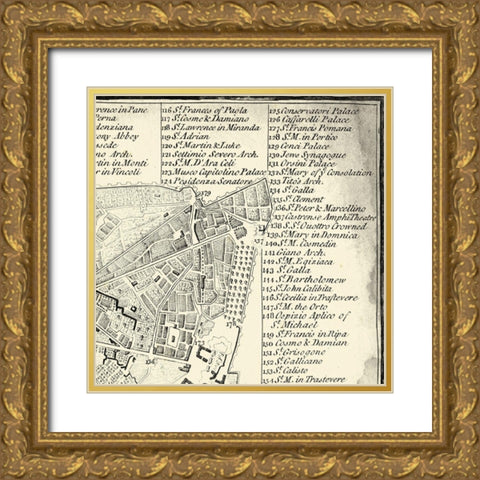 rence in Pane
Perna
denziana
ony Abbey
ssede
no Arch.
rtin in Monti
r in Vincoli
116 St. Frances of Paola
117 St. Cosmo & Damiano
118 St. Lawrence in Miranda
119 St. Adrian
120 St. Martin & Luke
121 Settimio Severo Arch.
122 St. M. D'Ara Celi
123 Museo Capitolino Palace
124 Residenza Senatore
125 Conservatori Palace
126 Caffarelli Palace
127 St. Francis Pomana
128 St. M. in Portico
129 Conci Palace
130 Jews Synagogue
131 Orsini Palace
132 St. Mary of ye Consolation
133 Tito's Arch
134 St. Galla
135 St. Clement
136 St. Peter & Marcellino
137 Castrense AmphiTheatre
138 S.S. Quattro Crowned
139 St. Mary in Domnica
140 St. M. Cosmedin
141 Giano Arch
142 St. M. Egiziaca
143 St. Galla
144 St. Bartholomew
145 St. John Calibita
146 St. Cecilia in Trastevere
147 St. M. the Orto
148 Ospizio Aplico of
St. Michael
149 St. Francis in Ripa
150 Cosmo & Damian
151 St. Grisogono
152 St. Gallicano
153 St. Calisto
154 St. M. in Trastevere
137